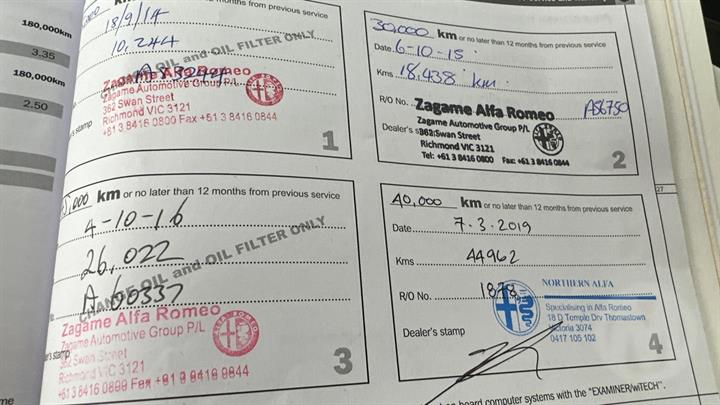 180,000km
3.35
180,000km
2.50
months from previous service
18/9/14
10,244
OIL and OIL FILTER ONLY
Zagame Alfa Romeo
Zagame Automotive Group P/L
362 Swan Street
Richmond VIC 3121
+61 3 8416 0800 Fax +61 3 8416 0844
1
30,000 km or no later than 12 months from previous service
Date 6-10-15
Kms 18,438 km
R/O No. A56750
Zagame Alfa Romeo
Zagame Automotive Group P/L
Dealer's 362 Swan Street
Richmond VIC 3121
Tel: +61 3 8416 0800 Fax: +61 3 8416 0844
2
,000 km or no later than 12 months from previous service
4-10-16
26,022
A60337
CHANGE OIL and OIL FILTER ONLY
Zagame Alfa Romeo
Zagame Automotive Group P/L
362 Swan Street
Richmond VIC 3121
+61 3 8416 0800 Fax +61 3 8416 0844
3
27
40,000 km or no later than 12 months from previous service
Date 7.3.2019
Kms 44962
R/O No. 1878
NORTHERN ALFA
Specialising in Alfa Romeo
18 D Temple Drv Thomastown
Victoria 3074
0417 105 102
Dealer's stamp
4
board computer systems with the "EXAMINER/wiTECH".